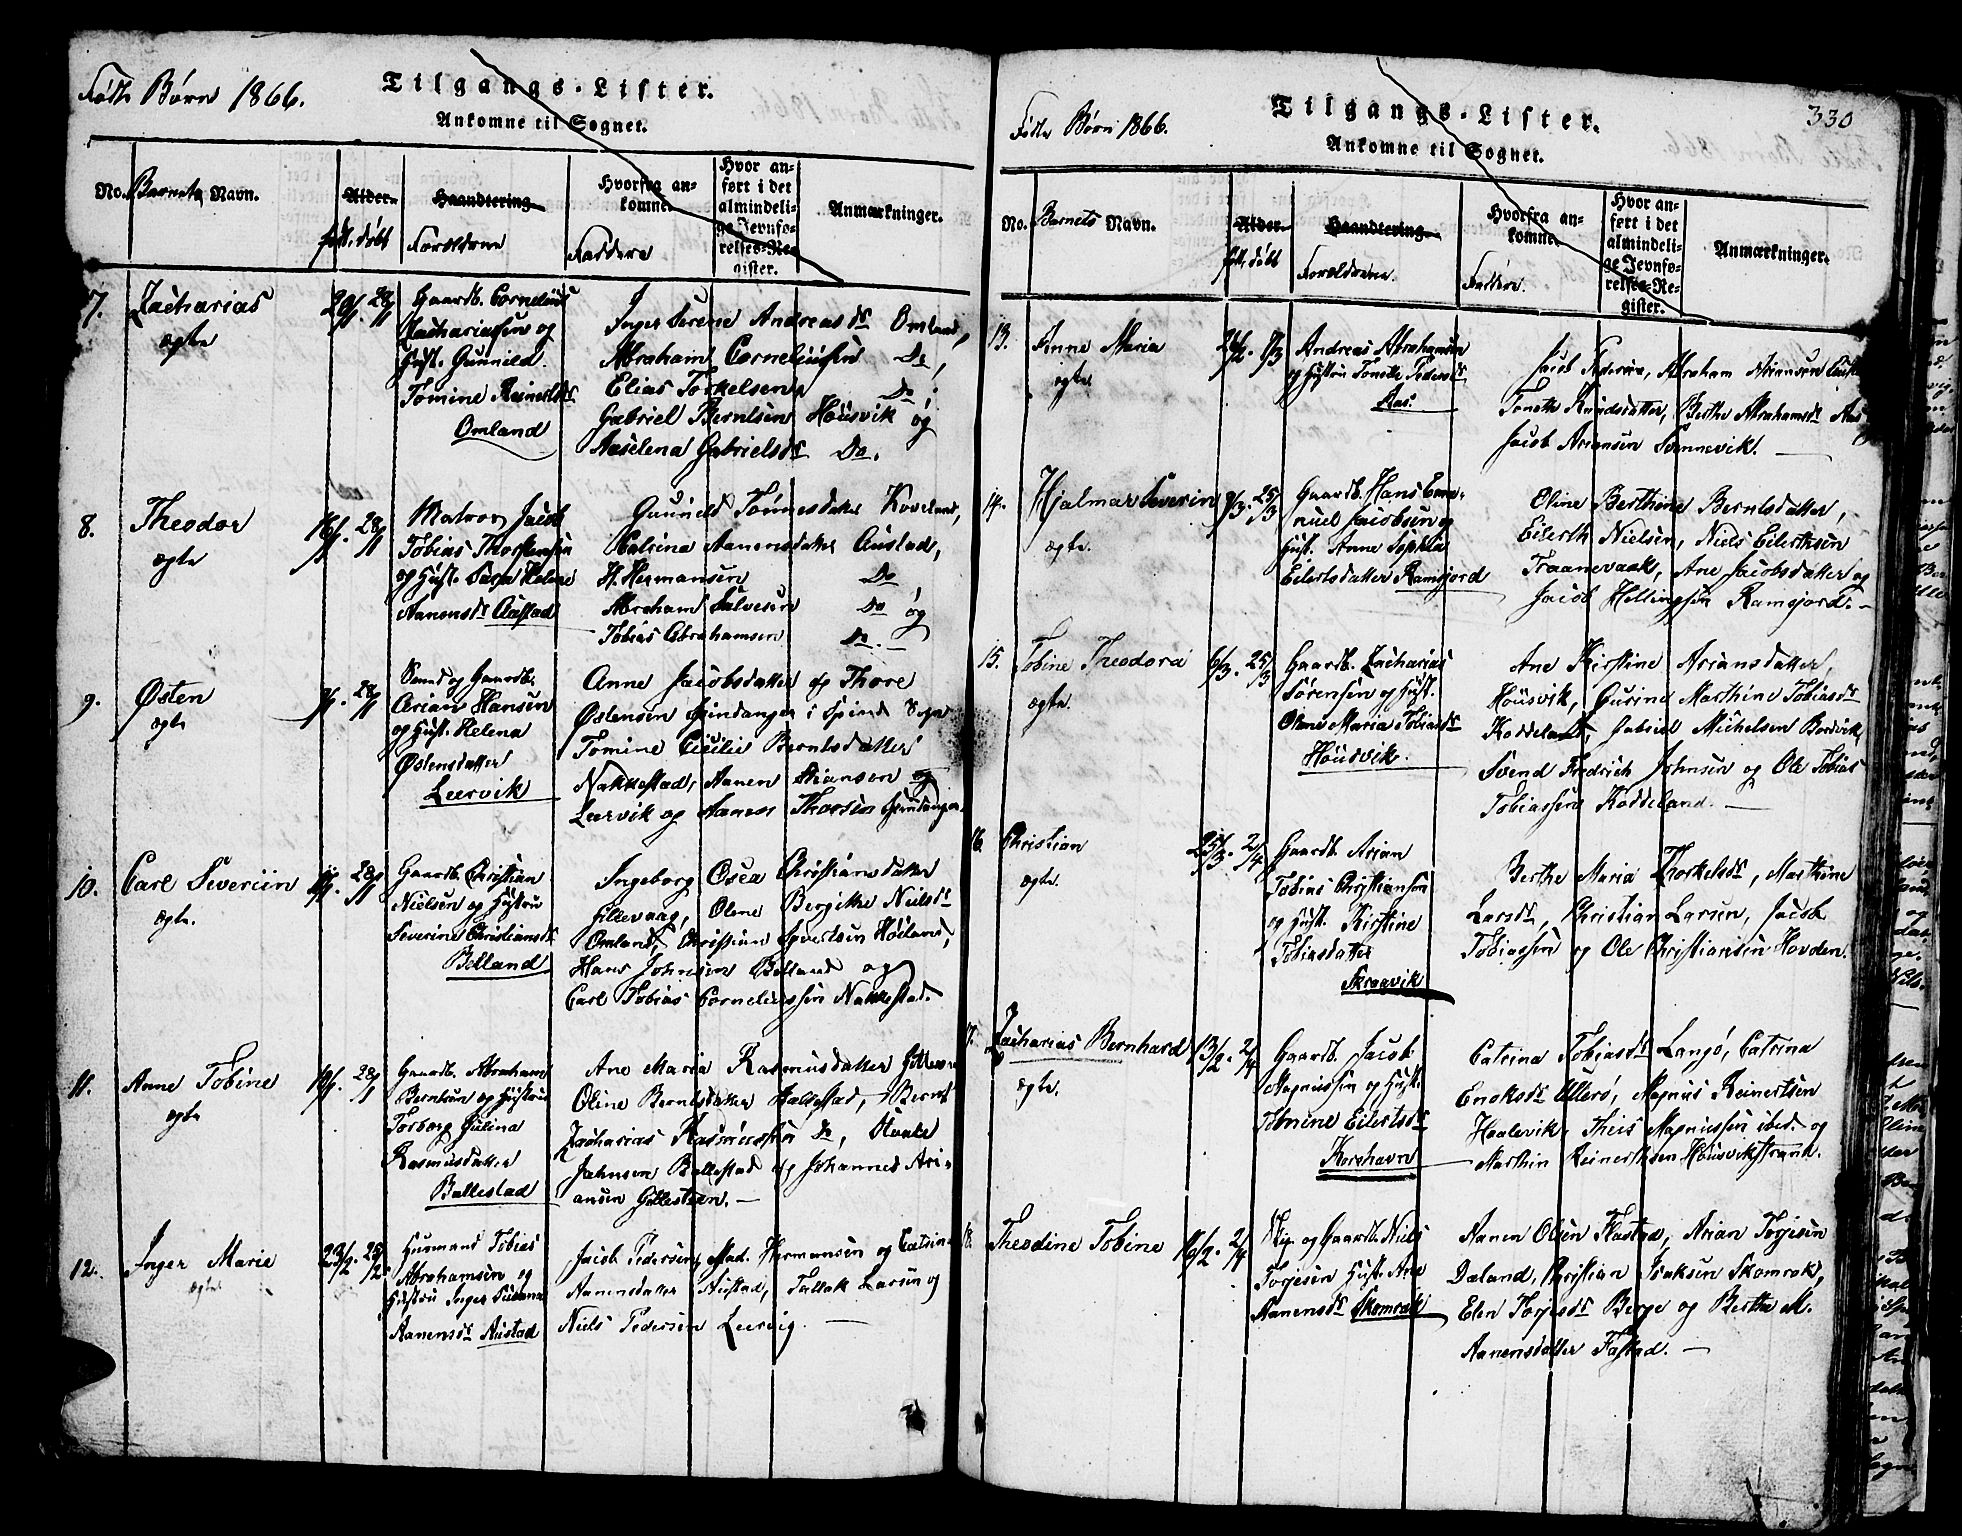 Fødte Børn 1866.
Tilgangs-Lister.
Ankomne til Sognet.
No. Barnets Navn.
Alder. født, døbt
Haandtering Forældrene
Hvorfra ankomne. Faddere
Hvor anført i det almindelige Jevnførelses-Register.
Anmærkninger.
7. Zacharias
ægte
28/1
Gaardb. Cornelius
Zachariassen og
Hust. Gunnild
Tomine Reinertsdr
Omland
Inger Serene Andreasdr Omland,
Abraham Corneliussen Do,
Elias Torkelsen Do,
Gabriel Berntsen Høusvik og
Aaselena Gabrielsdr Do.
8. Theodor
ægte
28/1
Matros Jacob
Tobias Thorkensen
og Hust. Helene
Aanensdr Austad
Gunild Tønnesdatter
Catrina Aanensdatter Austad,
H. Hermansen Do
Abraham Salvesen Do og
Tobias Abrahamsen Do.
9. Østen
ægte
28/1
og Gaardb.
Arian Hansen
og Hust. Helena
Østensdatter
Leervik
Anne Jacobsdatter og Thore
Østensen Spindanger i Spind Sogn
Tomine Cicilie Berntsdatter
Nakkestad, Aanen Stiansen og
Leervik og Aanen Thorsen Spindanger
10. Carl Severiin
ægte.
28/1
Gaardb. Christian
Nielsen og Hustru
Severine Christiansdr
Belland
Ingeborg Osea Christiansdatter
Gillevaag, Olene Bergitte Neilsdr
Omland, Christian Sivertsen Høiland,
Hans Johnsen Belland og
Carl Tobias Corneliussen Nakkestad.
11. Anne Tobine
ægte
28/1
Gaardb. Abraham
Berntsen og Hustru
Torborg Gulina
Rasmusdatter
Ballestad
Ane Maria Rasmusdatter
Oline Berntsdatter Ballestad, Bernt
Zacharias Rasmussen Do,
Johnsen Ballestad og Johannes Ari-
ansen Gillesteen.
12. Inger Marie
ægte
23/2. 25/2
Husmand Tobias
Abrahamsen og
Hustru Inger Susanna
Aanensdr Austad
Jacob Pedersen, Mad. Hermansen og Catrine
Aanensdatter Austad, Tallak Larsen og
Niels Pedersen Leervig.
330
Fødte Børn 1866.
Tilgangs-Lister.
Ankomne til Sognet.
No. Barnets Navn.
Alder. født, døbt
Haandtering Forældrene
Hvorfra ankomne. Faddere.
Hvor anført i det almindelige Jevnførelses-Register.
Anmærkninger.
13. Anne Maria
ægte.
Andreas Abrahamsen
og Hustru Tonette Pedersdr
Aas.
Jacob Pedersen, Abraham Ariansen
Tonette Knudsdatter, Berthe Abrahamsdr Aas
Jacob Ariansen Sønnevik.
14. Hjalmar Severin
ægte.
9/3. 25/3
Gaardb. Hans Ema-
nuel Jacobsen og
Hust. Anne Sophia
Eilertsdatter Ramsjord
Oline Berthine Berntsdatter,
Eilerth Nielsen, Niels Eilerthsen
Traanevaak, Ane Jacobsdatter og
Jacob Hellingsen Ramsjord.
15. Tobine Theodora
ægte.
6/3. 25/3
Gaardb. Zacharias
Sørensen og Hust.
Olene Maria Tobiasdr
Høusvik.
Ane Kirstine Ariansdatter,
Høusvik, Gurine Marthine Tobiasdr
Koddeland, Gabriel Michelsen Bordvik,
Svend Fredrich Johnsen og Ole Tobias
Tobiassen Koddeland.
16. Christian
ægte.
25/3. 2/4
Gaardb. Arian
Tobias Christiansen
og Hust. Kirstine
Tobiasdatter
Skraavik
Berthe Maria Thorkelsdr, Marthine
Larsdr, Christian Larsen, Jacob
Tobiassen og Ole Christiansen Hovden.
17. Zacharias Bernhard
ægte.
13/2. 2/4
Gaardb. Jacob
Magnussen og Hust.
Tomine Eilertsdr
Korshavn
Catrina Tobiasdr Langø, Catrina
Enoksdr Ullerø, Magnus Reinertsen
Haalevik, Theis Magnussen ibid. og
Marthin Reinerthsen Høusvikstrand.
18. Theodine Tobine
16/2. 2/4
og Gaardb. Niels
Torjesen Hust. Ane
Aanensdr Skomrak
Aanen Olsen Fastad, Arian Torjesen
Dæland, Christian Isaksen Skomrak,
Elen Torjesdr Berge og Berthe M.
Aanensdatter Fastad.